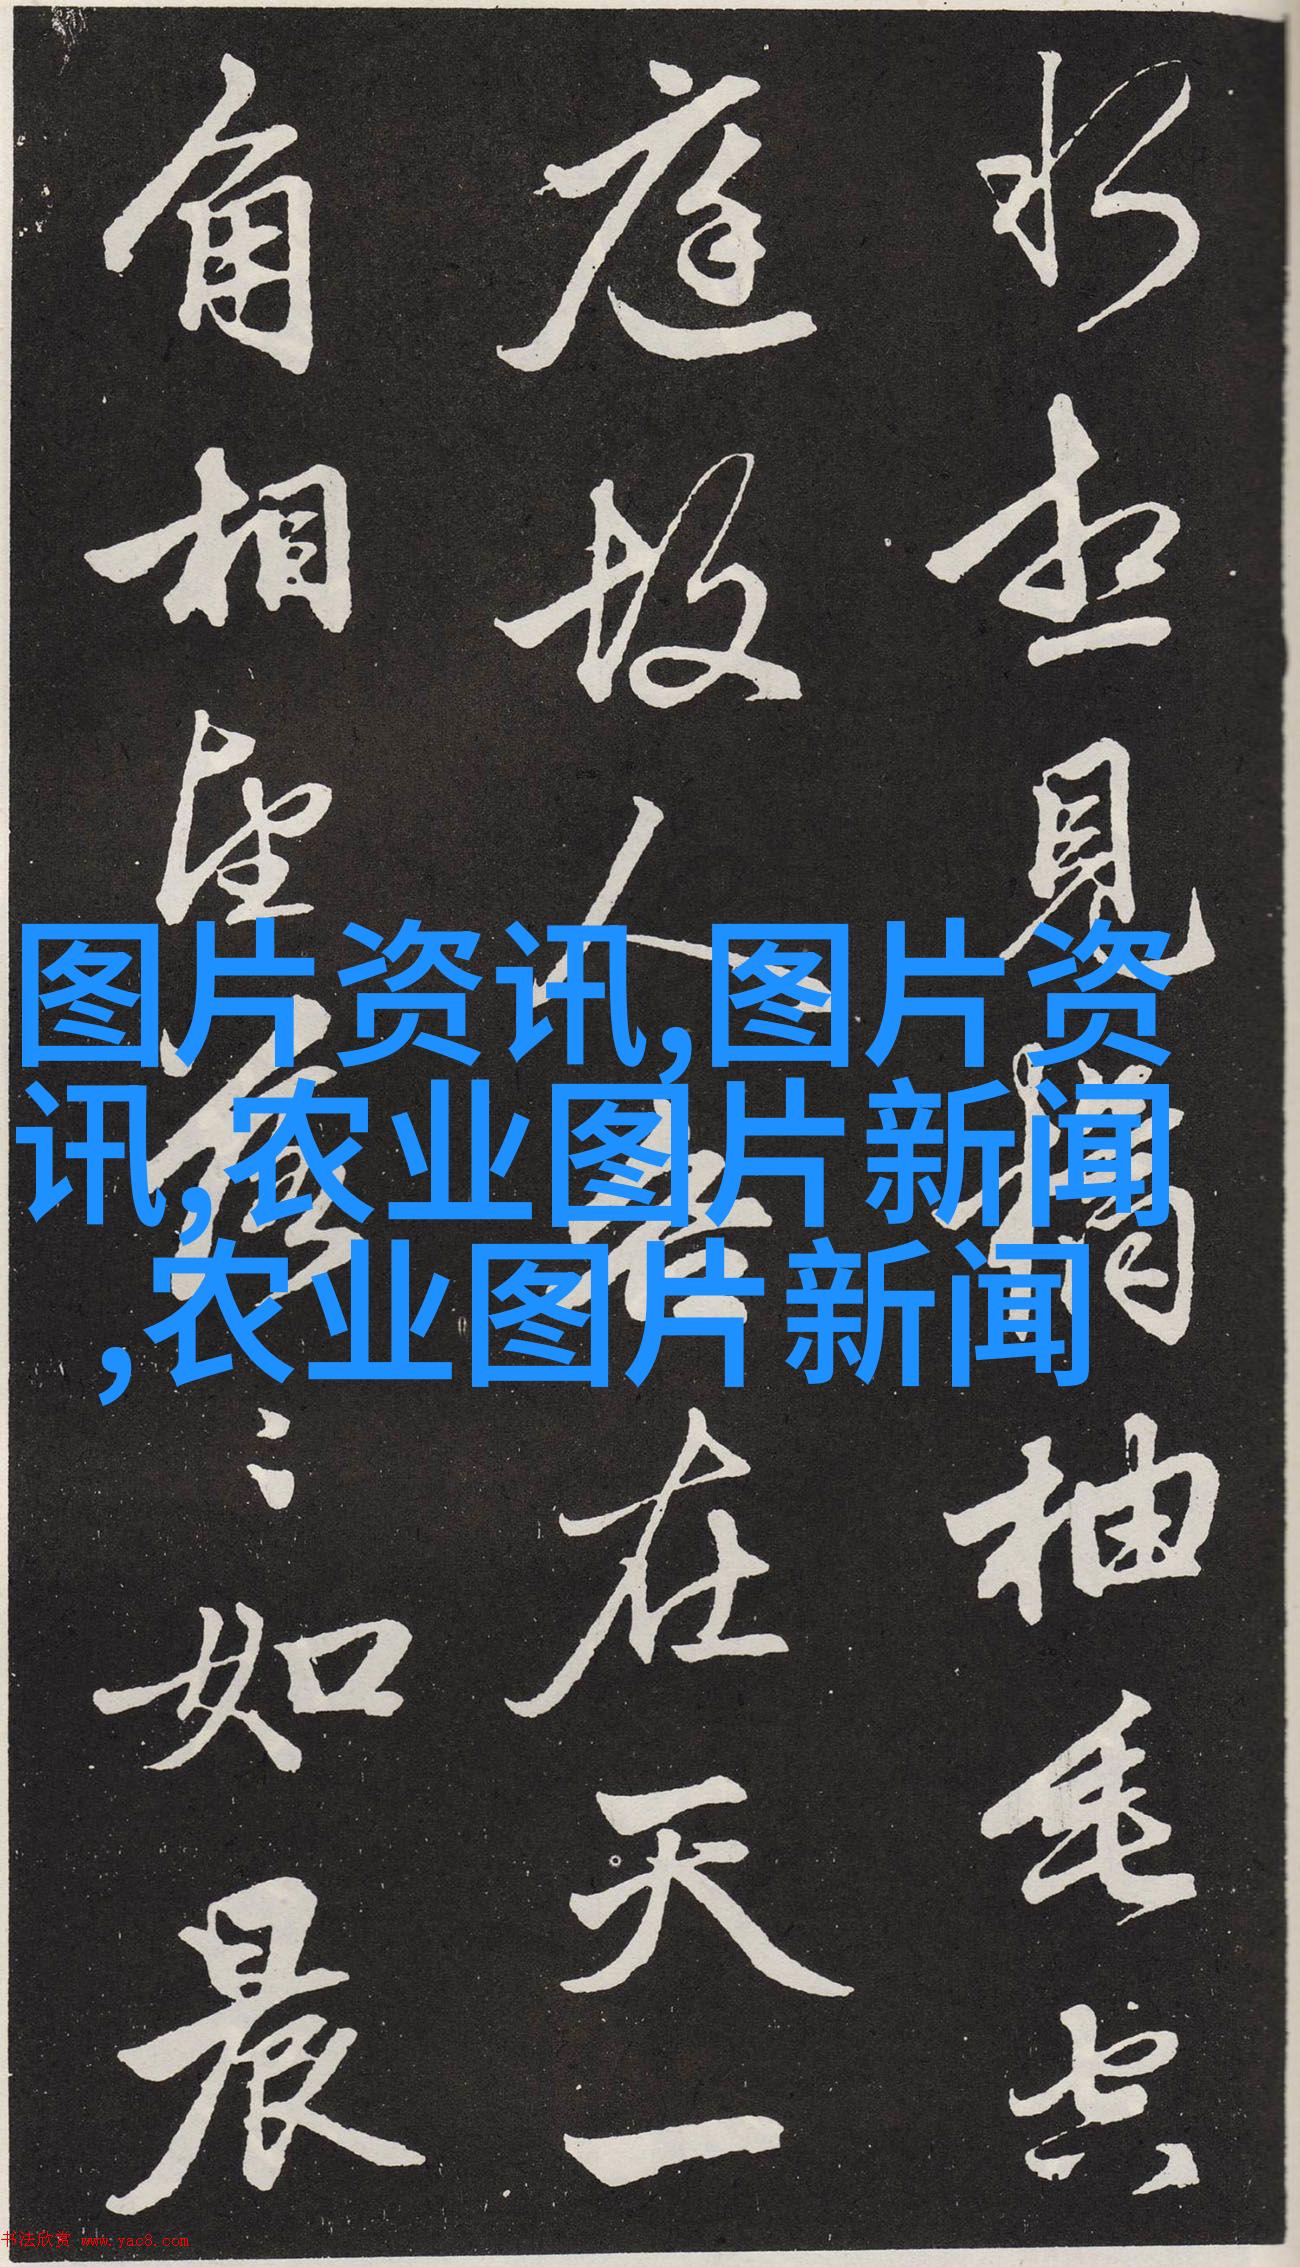 水想見橘柚垂空
庭故人各在天一
角相望落〻如晨
图片资讯,图片资
讯,农业图片新闻
,农业图片新闻
书法欣赏 www.yac8.com